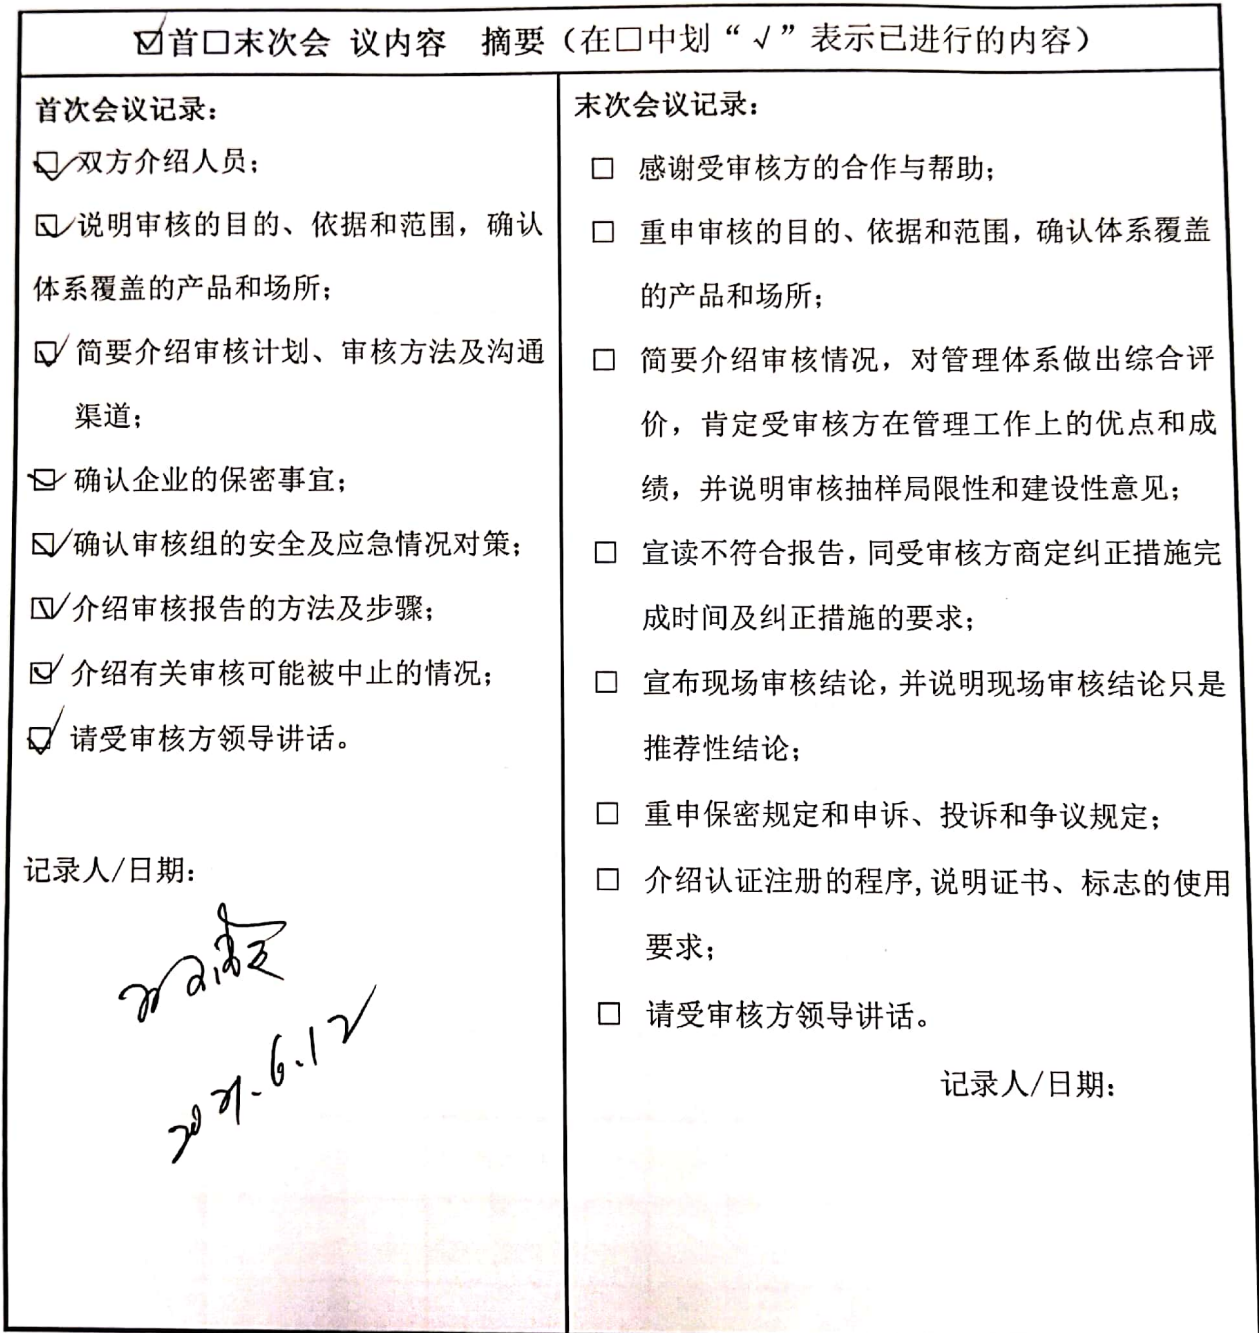 ☑首□末次会 议内容 摘要（在□中划“√”表示已进行的内容）
首次会议记录：
☑双方介绍人员；
☑说明审核的目的、依据和范围，确认
体系覆盖的产品和场所；
☑简要介绍审核计划、审核方法及沟通
渠道；
☑确认企业的保密事宜；
☑确认审核组的安全及应急情况对策；
☑介绍审核报告的方法及步骤；
☑介绍有关审核可能被中止的情况；
☑请受审核方领导讲话。
记录人/日期：
2021.6.12
末次会议记录：
□ 感谢受审核方的合作与帮助；
□ 重申审核的目的、依据和范围，确认体系覆盖
的产品和场所；
□ 简要介绍审核情况，对管理体系做出综合评
价，肯定受审核方在管理工作上的优点和成
绩，并说明审核抽样局限性和建设性意见；
□ 宣读不符合报告，同受审核方商定纠正措施完
成时间及纠正措施的要求；
□ 宣布现场审核结论，并说明现场审核结论只是
推荐性结论；
□ 重申保密规定和申诉、投诉和争议规定；
□ 介绍认证注册的程序,说明证书、标志的使用
要求；
□ 请受审核方领导讲话。
记录人/日期：